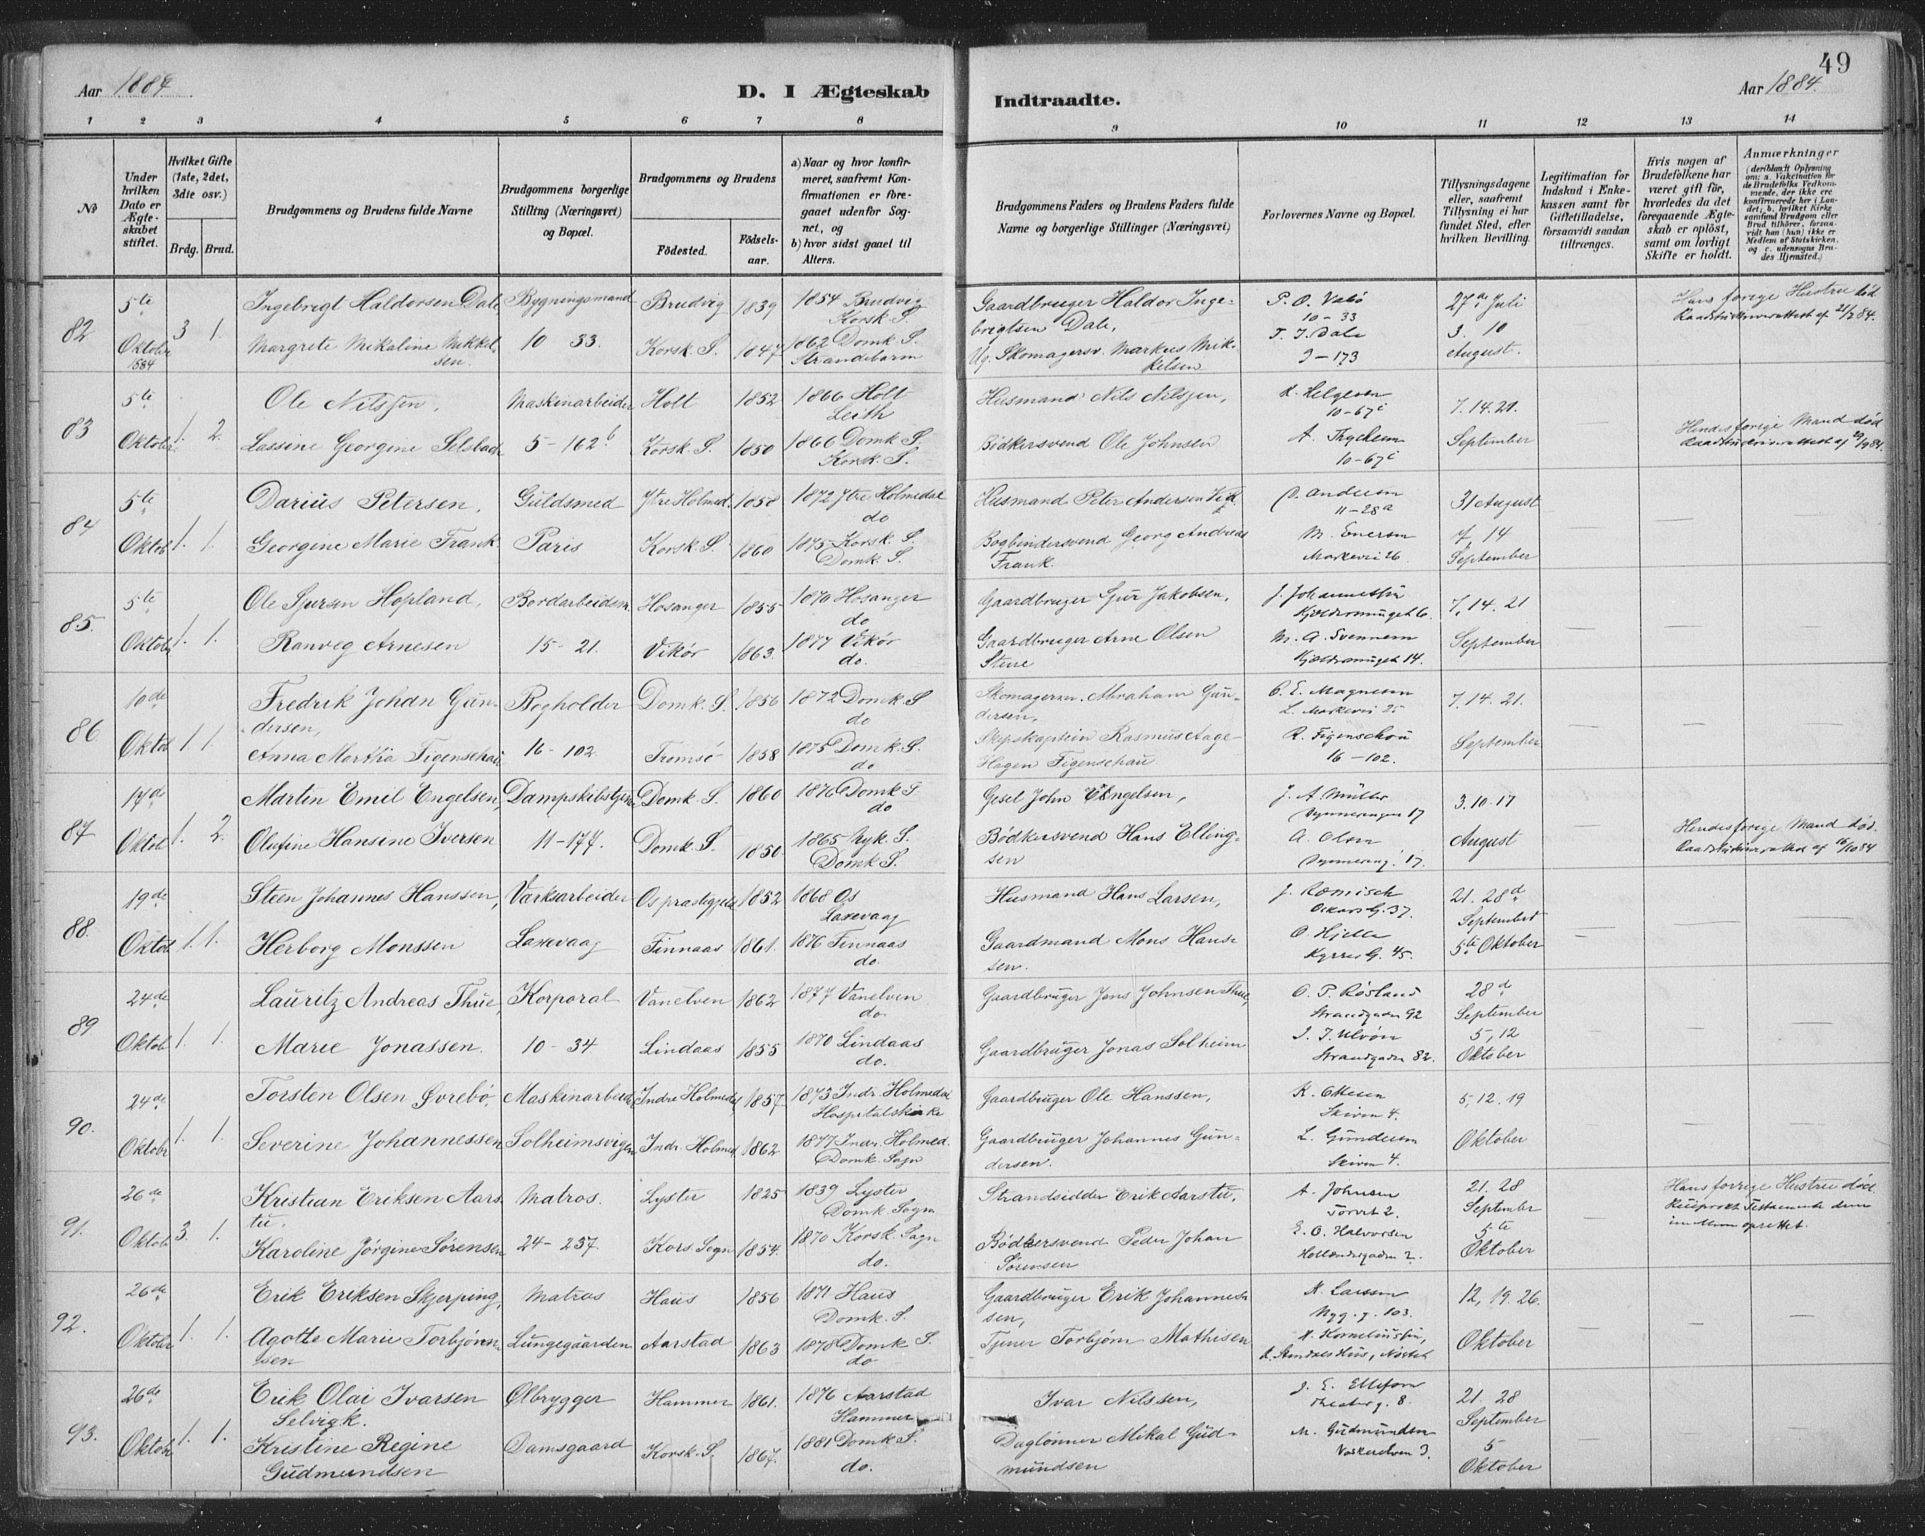 49
Aar 1884
D. I Ægteskab
Indtraadte.
Aar 1884.
1 2 3 4 5 6 7 8 9 10 11 12 13 14
No
Under hvilken Dato er Ægteskabet stiftet.
Hvilket Gifte (1ste, 2det, 3die osv.)
Brdg. Brud.
Brudgommens og Brudens fulde Navne
Brudgommens borgerlige Stilling (Næringsvei) og Bopæl.
Brudgommens og Brudens
Fødested. Fødselsaar.
a) Naar og hvor konfirmeret, saafremt Konfirmationen er foregaaet udenfor Sognet, og
b) hvor sidst gaaet til Alters.
Brudgommens Faders og Brudens Faders fulde Navne og borgerlige Stillinger (Næringsvei)
Forlovernes Navne og Bopæl.
Tillysningsdagene eller, saafremt Tillysning ei har fundet Sted, efter hvilken Bevilling.
Legitimation for Indskud i Enkekassen samt for Giftetilladelse, forsaavidt saadan tiltrænges.
Hvis nogen af Brudefolkene har været gift før, hvorledes da det foregaaende Ægteskab er opløst, samt om lovligt Skifte er holdt.
Anmærkninger
82 5te Oktober 1884 3 1.
Ingebrigt Haldorsen Dale Bygningsmand Brudvig 1839 1854 Brudvig Korsk. S.
Margrete Mikaline Mikkelsen 10 33. Korsk. S. 1847 1862 Domk. S. Strandebarm
Gaardbruger Haldor Ingebrigtsen Dale, P. O. Valø 10-33 27de Juli
Ug. Skomagersv. Markus Mikkelsen T. I. Dale 9-173 3. 10 August.
Hans forige Hustru død
83 5te Oktober 1. 2.
Ole Nilssen, Maskinarbeider Holt 1852 1866 Holt Leith
Lassine Georgine Selstad 5-162b Korsk. S. 1850 1866 Domk. S. Korsk. S.
Husmand Nils Nilssen, 10-67c 7. 14. 21.
Bødkersvend Ole Johnsen 10-67c September
Hendes forige Mand død
84 5te Oktob. 1. 1.
Darius Petersen, Guldsmed Ytre Holmed. 1858 1872 Ytre Holmedal do
Georgine Marie Frank Paris Korsk. S. 1860 1875 Korsk. S. Domk. S.
Husmand Peter Andersen 11-28a 31 August
Bogbindersvend Georg Andreas Frank. 7, 14 September
85. 5te Oktob. 1. 1.
Ole Sjursen Hopland, Bordarbeidsm. Hosanger 1855 1870 Hosanger do
Ranveg Arnesen 15-21. Vikør 1863. 1877 Vikør do.
Gaardbruger Sjur Jakobsen, 7, 14. 21
Gaardbruger Arne Olsen Steine September
86. 10de Oktob. 1. 1.
Fredrik Johan Gundersen, Bogholder Domk. S. 1856 1872 Domk. S do
Anna Martha Figenschau 16-102. Tromsø 1858 1875 Domk. S. do
Skomagersv. Abraham Gundersen, 7. 14. 21.
Skipskaptein Rasmus Aage Hagen Figenschau R. Figenschou 16-102. September
87 17de Oktob. 1. 2.
Martin Emil Engelsen, Domk. S. 1860 1876 Domk. S do
Olufine Hansine Iversen 11-177. Domk. S. 1850. 1865 Nyk. S. Domk. S.
Gesel John Engelsen, J. A Müller 3. 10. 17
Bødkersvend Hans Ellingsen A. Olsen August
Hendes forige Mand død.
88. 19de Oktob. 1. 1.
Steen Johannes Hanssen, Værksarbeider Os præstegjeld 1852 1868 Os Laxevaag
Herborg Monssen Laxevaag Finnaas 1861. 1876 Finnaas do.
Husmand Hans Larsen, 21. 28de September
Gaardmand Mons Hanssen. O Hjelle 5te Oktober
89 24de Oktob. 1. 1.
Lauritz Andreas Thue, Korporal Vanelven 1862 1877 Vanelven do.
Marie Jonassen. 10-34 Lindaas 1855 1870 Lindaas do.
Gaardbruger Jens Johnsen Thue, O. P. Røsland Strandgaden 92 28de September
Gaardbruger Jonas Solheim Strandgaden 82. 5, 12 Oktober
90. 24de Oktobr 1. 1.
Torsten Olsen Øvrebø, Maskinarbeider Indre Holmedal 1857 1873 Indr. Holmedal Hospitalskirke
Severine Johannessen Solheimsvigen Indr. Holmed. 1862 1877 Indr. Holmed. Domk. Sogn
Gaardbruger Ole Hanssen, Skiven 4. 5, 12. 19
Gaardbruger Johannes Gundersen. L. Gundersen Skiven 4. Oktober
91. 26de Oktob. 3. 1.
Kristian Eriksen Aarstu. Matros. Lyster 1825 1839 Lyster Domk. Sogn
Karoline Jørgine Sørensen 24-237. Kors Sogn 1854. 1870 Korsk. Sogn do.
Strandsidder Erik Aarstu, A. Johnsen Torvet 2. 21. 28 September
Bødkersvend Peder Johan Sørensen E. O. Halvorsen Hollændergaden 2. 5te Oktober
Hans forrige Hustru død
92. 26de Oktober 1. 1.
Erik Eriksen Skjerping, Matros Haus 1856 1871 Haus Domk. S.
Agothe Marie Torbjørnsen Lungegaarden Aarstad 1863 1878 Domk S. do
Gaardbruger Erik Johannessen, Nyg. g. 103. 12, 19. 26.
Tjener Torbjørn Mathisen Oktober
93. 26de Oktob. 1. 1.
Erik Olai Ivarsen Selvigk. Ølbrygger Hammer 1861. 1876 Aarstad Hammer
Kristine Regine Gudmundsen Damsgaard Korsk. S. 1864. 1881 Domk. S. do.
Ivar Nilssen, Theaterg. 8. 21. 28 September
Daglønner Mikal Gudmundsen M. Gudmundsen 5 Oktober